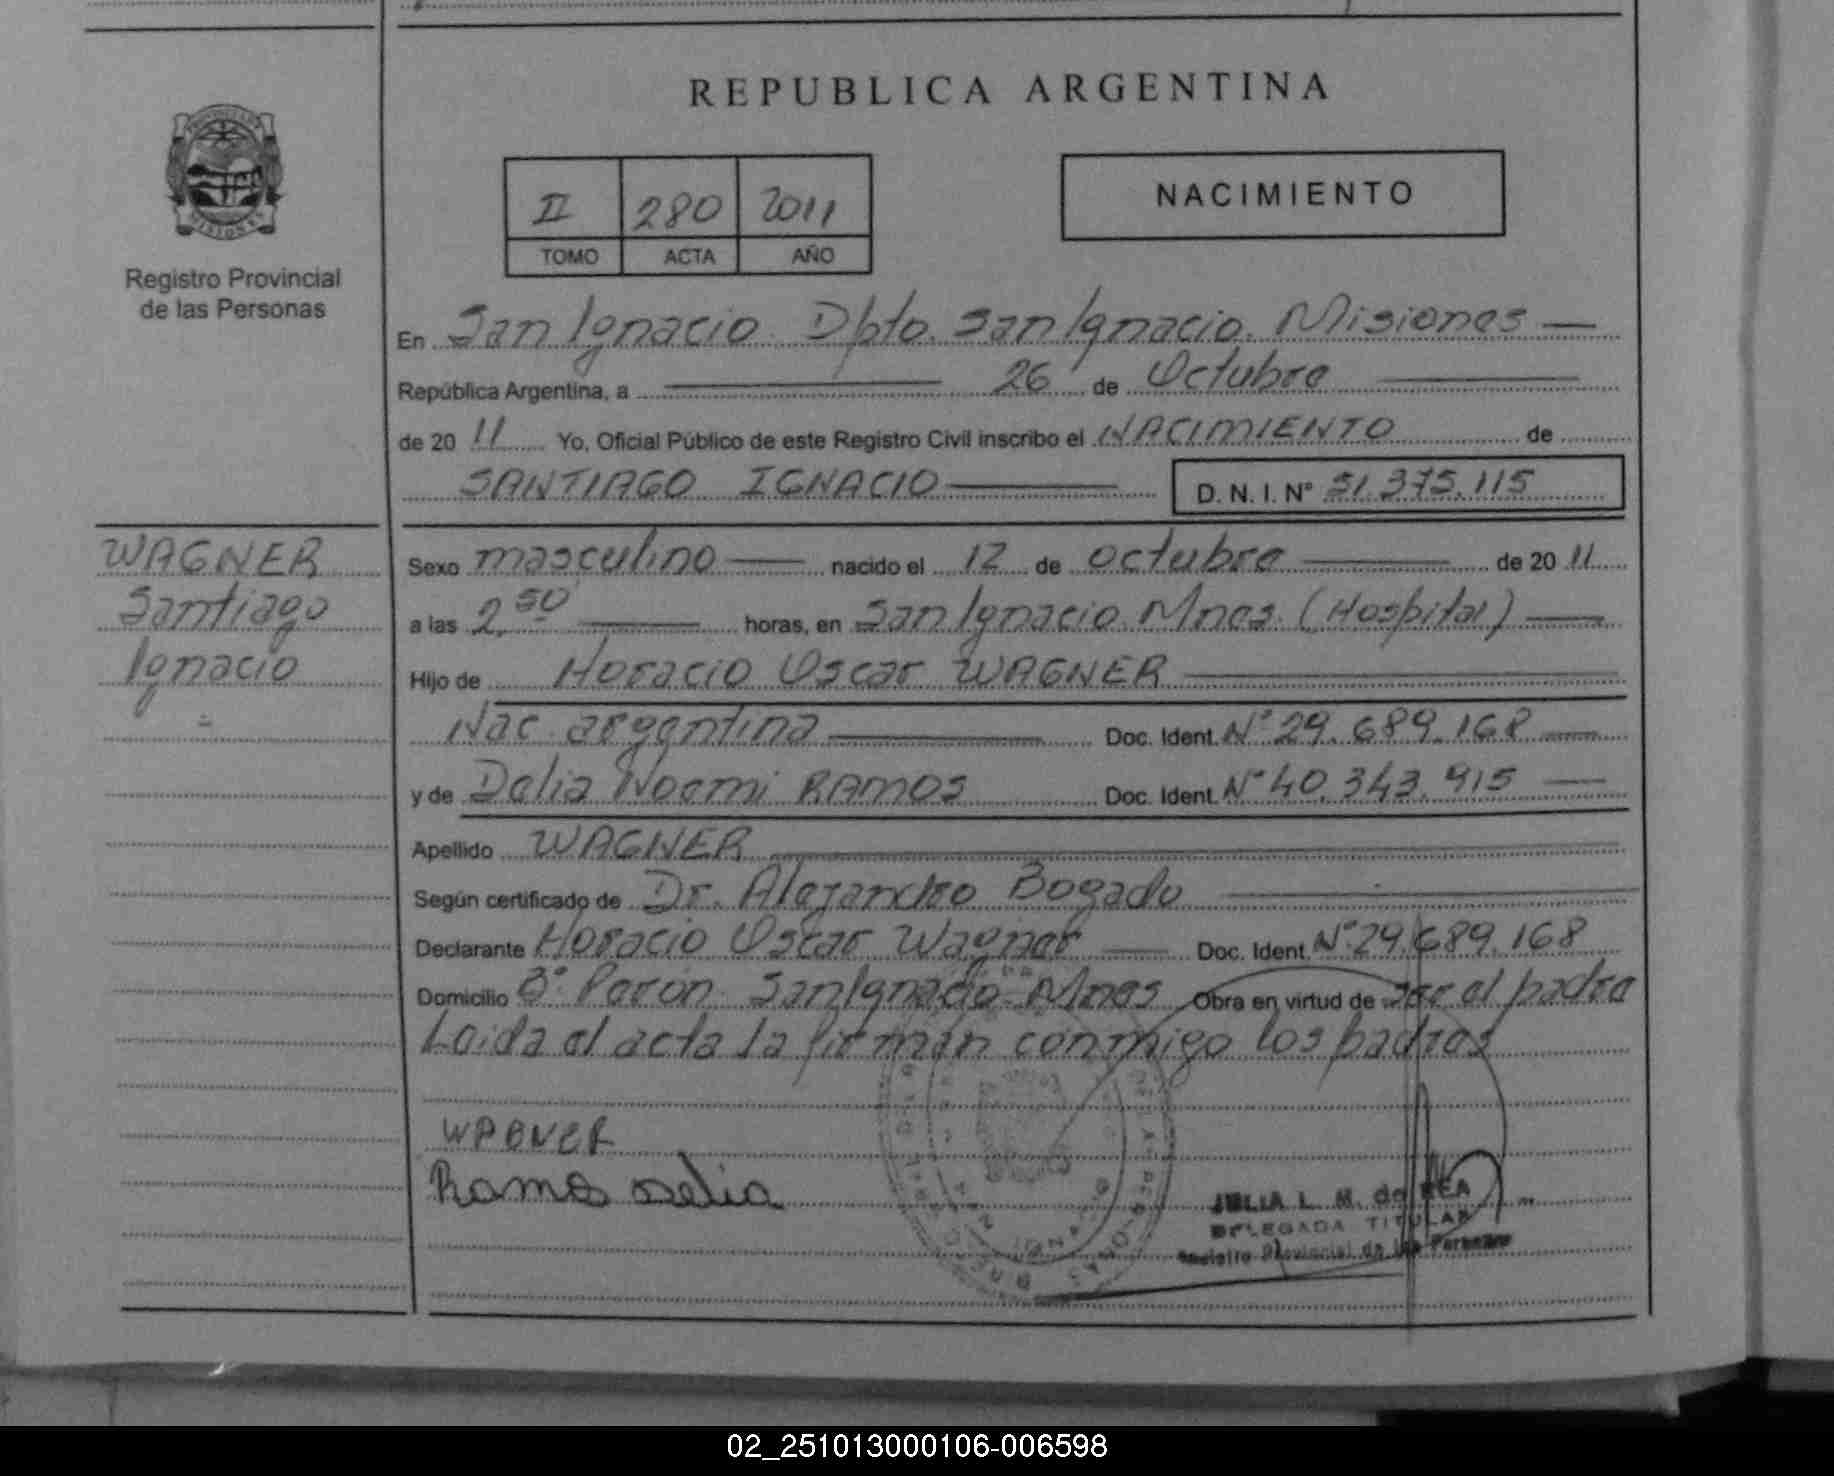 REPUBLICA ARGENTINA
II 280 2011
TOMO ACTA AÑO
NACIMIENTO
Registro Provincial
de las Personas
En San Ignacio Dpto. San Ignacio. Misiones
República Argentina, a 26 de Octubre
de 20 11 Yo, Oficial Público de este Registro Civil inscribo el NACIMIENTO de
SANTIAGO IGNACIO D. N. I. N° 51.375.115
WAGNER
Santiago
Ignacio
Sexo masculino nacido el 12 de octubre de 20 11
a las 2,50 horas, en San Ignacio Mnes. (Hospital)
Hijo de Horacio Oscar WAGNER
Nac. argentina Doc. Ident. N° 29.689.168
y de Delia Noemi RAMOS Doc. Ident. N° 40.343.915
Apellido WAGNER
Según certificado de Dr. Alejandro Bogado
Declarante Horacio Oscar Wagner Doc. Ident. N° 29.689.168
Domicilio B° Peron San Ignacio Mnes Obra en virtud de ser el padre
Leida el acta la firman conmigo los padres
WAGNER
Ramos Delia
JULIA L. M. de REA
DELEGADA TITULAR
Registro Provincial de las Personas
02_251013000106-006598